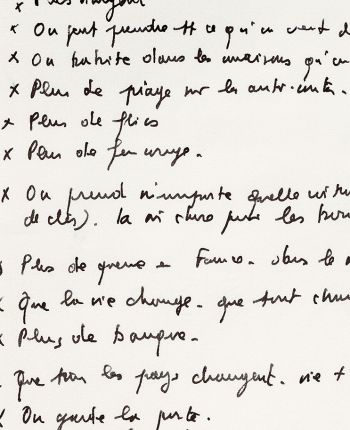 x Plus d'argent
x On peut prendre tt ce qu'on veut d
x On habite dans les maisons qu'on
x Plus de péage sur les autoroutes.
x Plus de flics
x Plus de feu rouge.
x On prend n'importe quelle voiture
de clés). la mi chose pour les
x Plus de guerre en France. dans le m
x Que la vie change. que tout chan
x Plus de banque.
Que tous les pays changent. vie +
x On garde la porte.